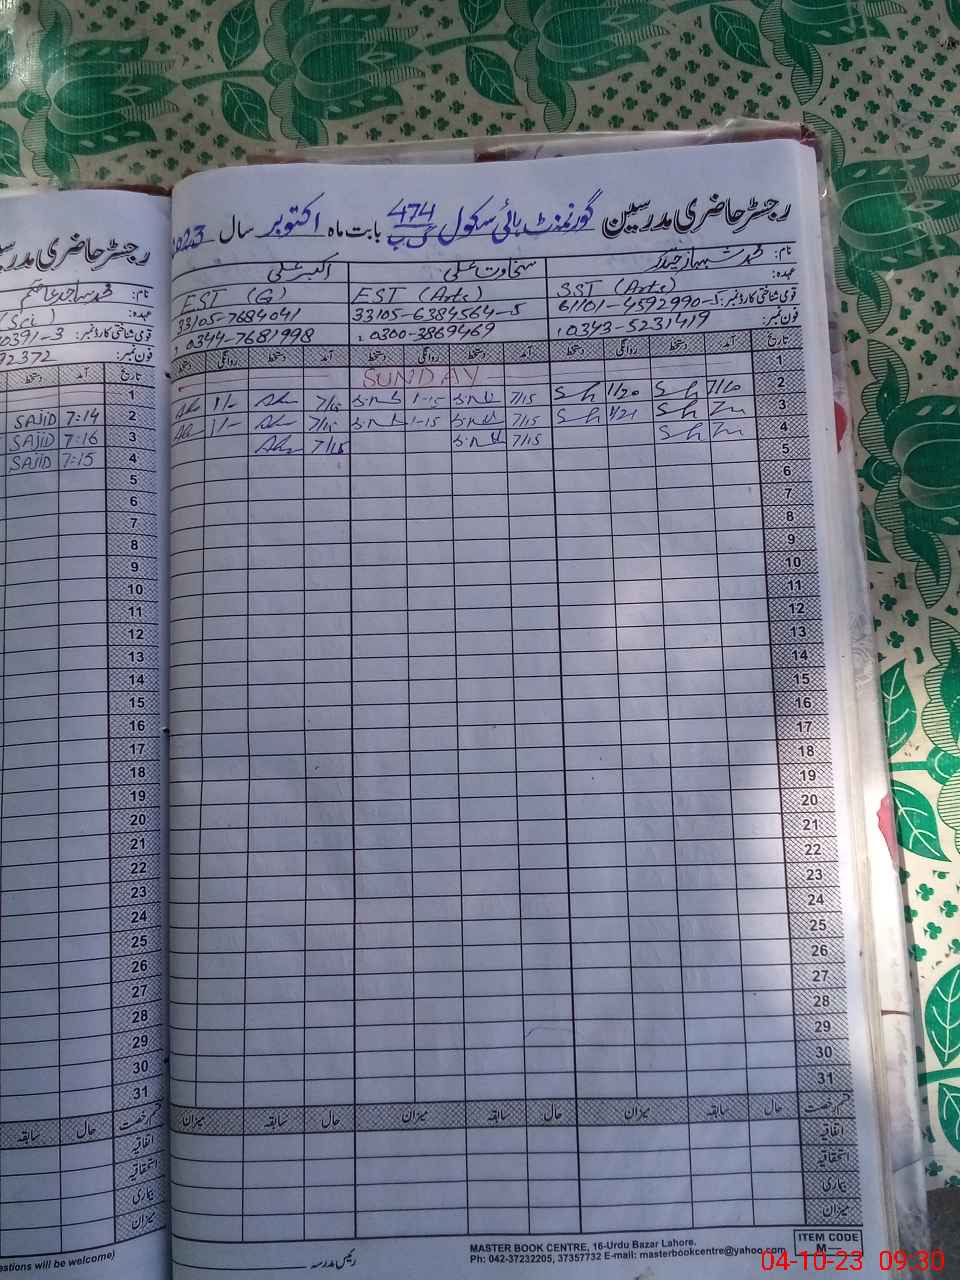 رجسٹر حاضری مدرسین گورنمنٹ ہائی سکول 474 گ ب بابت ماہ اکتوبر سال 2023
نام: محمد شہباز حیدر سخاوت علی اکبر علی
عہدہ: SST (Arts) EST (Arts) EST (G)
قومی شناختی کارڈ نمبر: 61101-4592990-5 33105-6384564-5 33105-7684041
فون نمبر: 0343-5231419 0300-3869469 0344-7681998
تاریخ آمد دستخط روانگی دستخط آمد دستخط روانگی دستخط آمد دستخط روانگی دستخط
1 SUNDAY
2 7/10 Sh 1/20 Sh 7/15 1-15 7/15 1/-
3 Sh 1/21 Sh 7/15 1-15 7/15 1/-
4 Sh 7/15 7/15
5
6
7
8
9
10
11
12
13
14
15
16
17
18
19
20
21
22
23
24
25
26
27
28
29
30
31
قسم رخصت حال سابقہ میزان حال سابقہ میزان حال سابقہ میزان
اتفاقیہ
استحقاقیہ
بیماری
میزان
رئیس مدرسہ
MASTER BOOK CENTRE, 16-Urdu Bazar Lahore.
Ph: 042-37232205, 37357732 E-mail: masterbookcentre@yahoo.com
ITEM CODE
M—
رجسٹر حاضری مدرسین
نام: محمد ساجد عاصم
عہدہ: (Sci)
قومی شناختی کارڈ نمبر: 0391-3
فون نمبر: 92372
تاریخ آمد دستخط
1
2 7:14 SAJID
3 7:16 SAJID
4 7:15 SAJID
5
6
7
8
9
10
11
12
13
14
15
16
17
18
19
20
21
22
23
24
25
26
27
28
29
30
31
قسم رخصت حال سابقہ
اتفاقیہ
استحقاقیہ
بیماری
میزان
estions will be welcome)
04-10-23 09:30